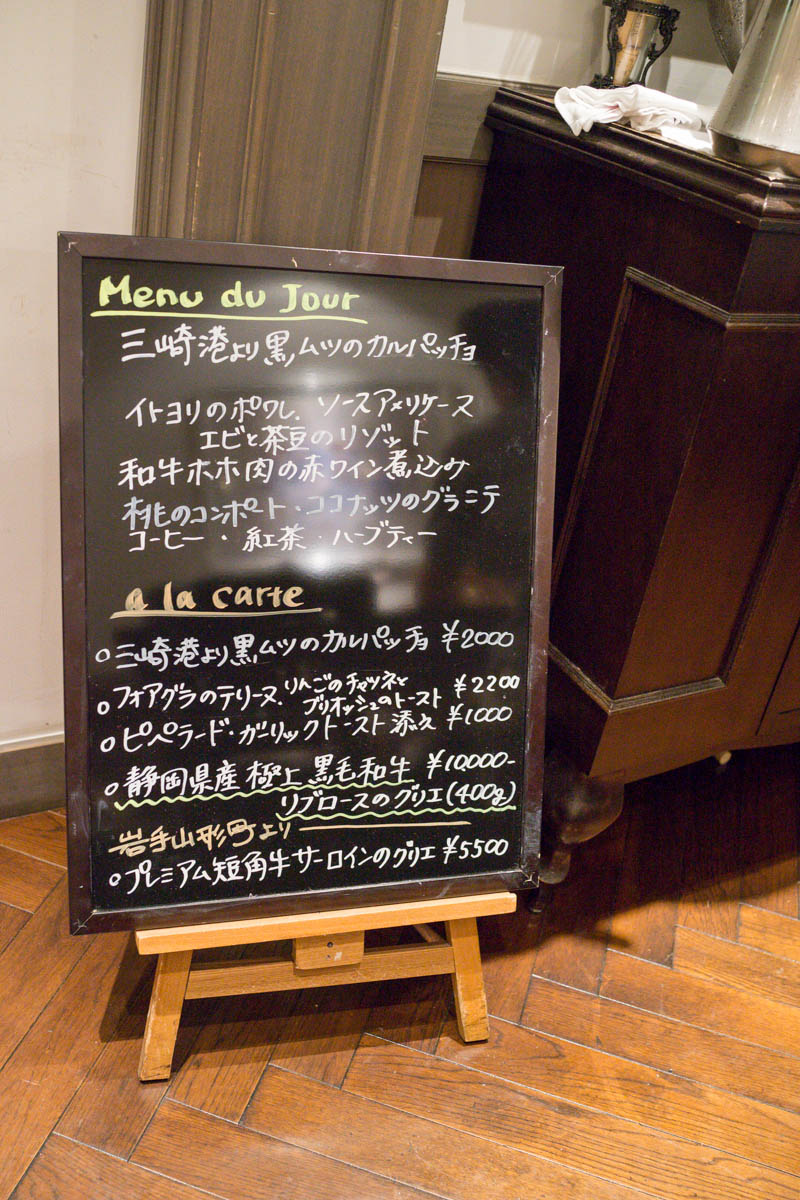 Menu du Jour
三崎港より黒ムツのカルパッチョ
イトヨリのポワレ. ソースアメリケーヌ
エビと茶豆のリゾット
和牛ホホ肉の赤ワイン煮込み
桃のコンポート・ココナッツのグラニテ
コーヒー・紅茶・ハーブティー
a la carte
○三崎港より黒ムツのカルパッチョ ¥2000
○フォアグラのテリーヌ. りんごのチャツネと
ブリオッシュのトースト ¥2200
○ピペラード・ガーリックトースト添え ¥1000
○静岡県産極上黒毛和牛 ¥10,000-
リブロースのグリエ(400g)
岩手山形町より
○プレミアム短角牛サーロインのグリエ ¥5500